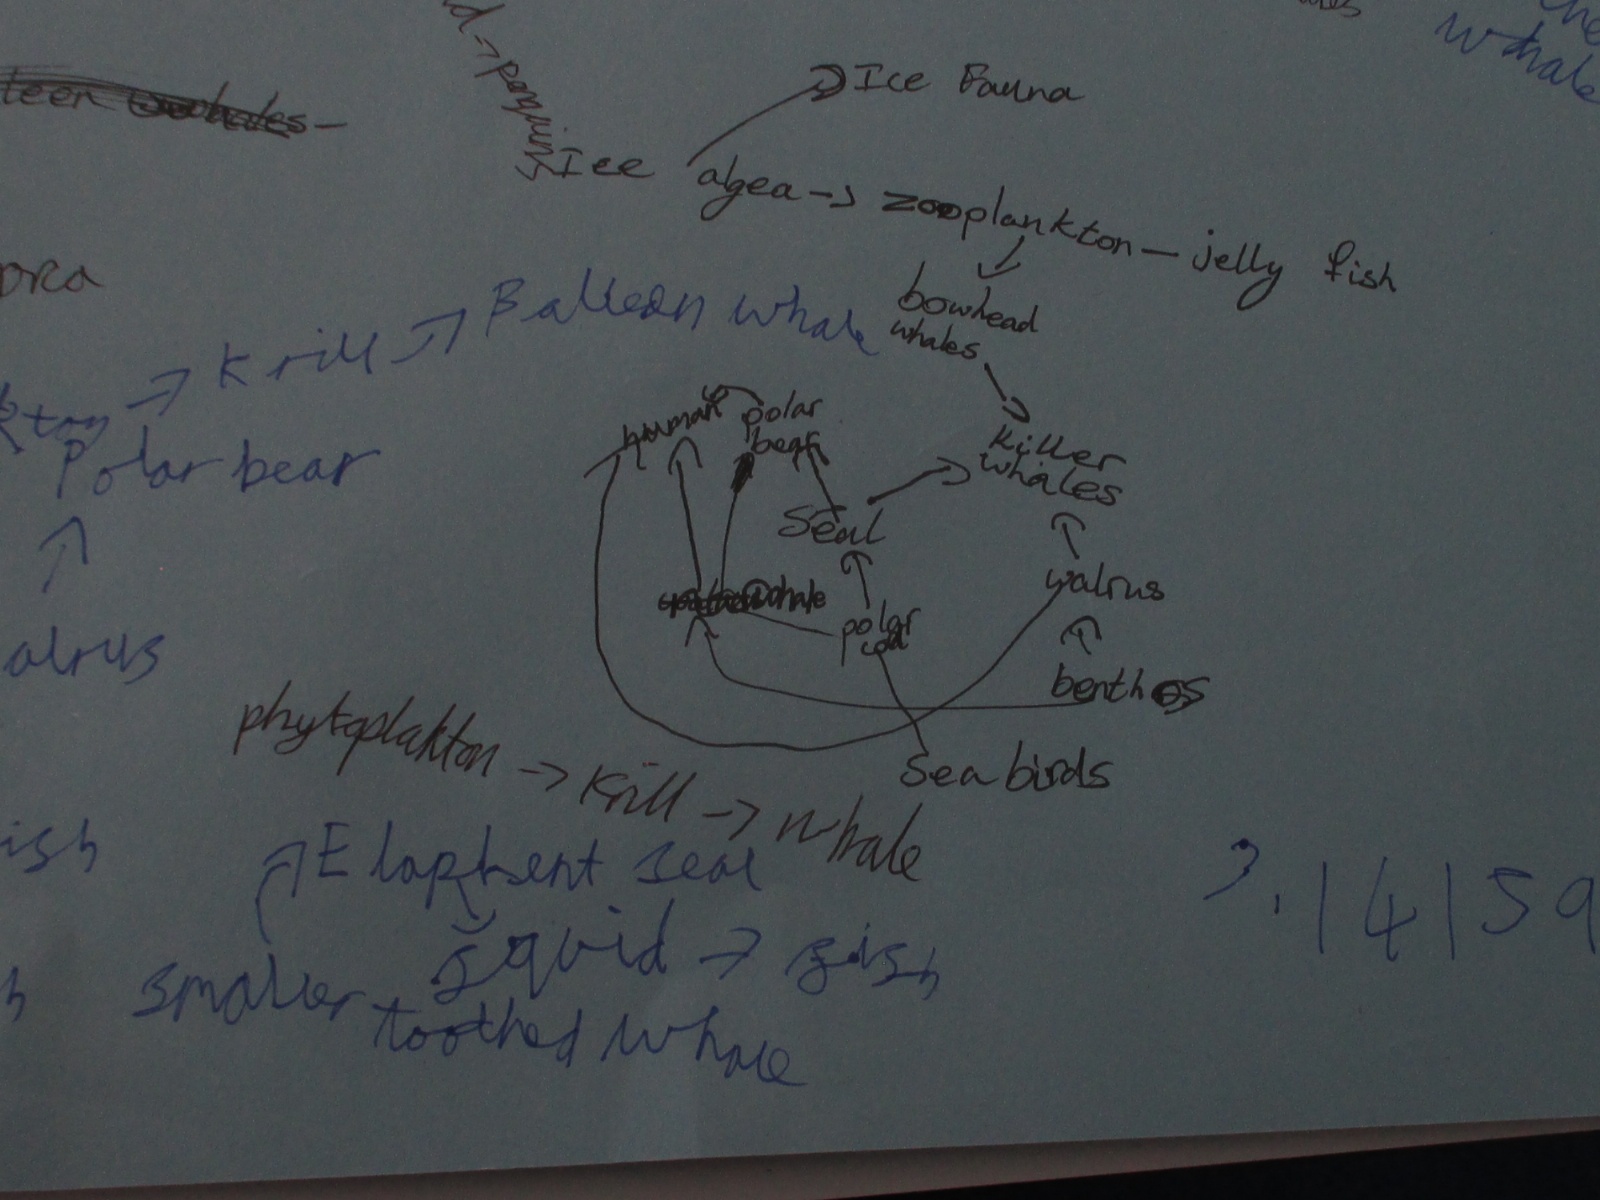 penguins
whale
Ice Fauna
leen whales -
Ice algea -> zooplankton - jelly fish
bowhead
whales
-> Krill -> Balleen whale
human
polar
bear
Killer
whales
Polar bear
Seal
walrus
whale
polar
cod
benthos
alrus
phytoplakton -> Krill -> whale
Sea birds
ish
Elaphent seal
3.14159
squid -> fish
smaller toothed whale